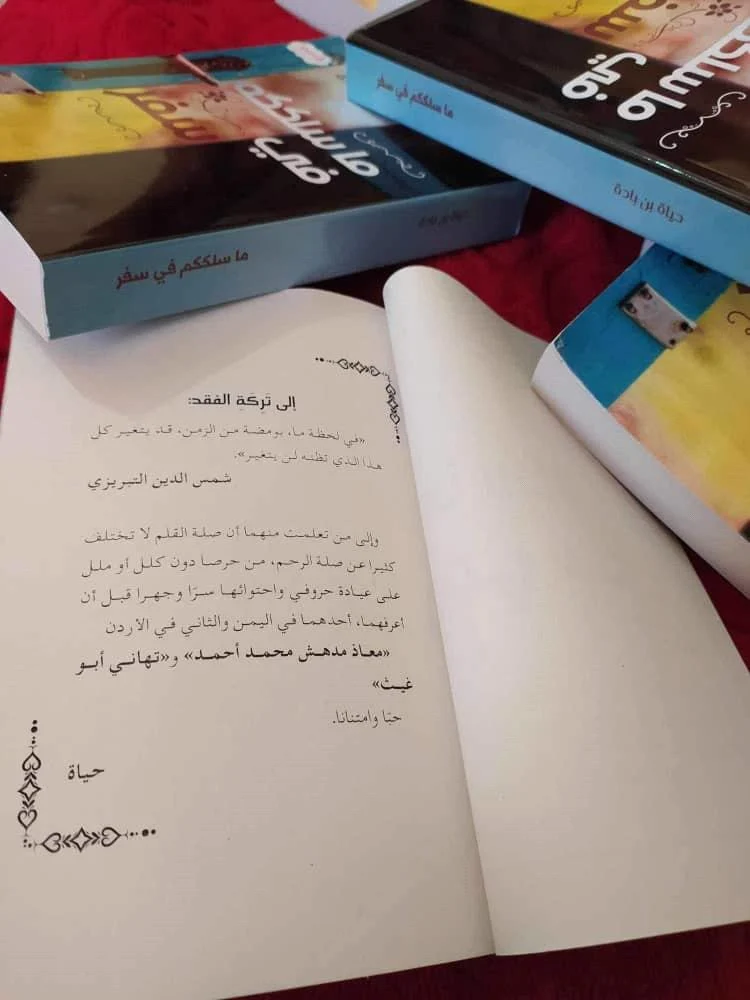 سفر
ما سلككم
في
ما سلككم في سفر
ما سلككم في سفر
حياة بن يادة
في
ما سلككم في سفر
إلى تَرِكَةِ الفقد:
«في لحظة ما، بومضة من الزمن، قد يتغير كل
هذا الذي تظنه لن يتغير».
شمس الدين التبريزي
وإلى من تعلمت منهما أن صلة القلم لا تختلف
كثيرا عن صلة الرحم، من حرصا دون كلل أو ملل
على عيادة حروفي واحتوائها سرّا وجهرا قبل أن
أعرفهما، أحدهما في اليمن والثاني في الأردن
«معاذ مدهش محمد أحمد» و«تهاني أبو
غيث»
حبّا وامتنانا.
حياة